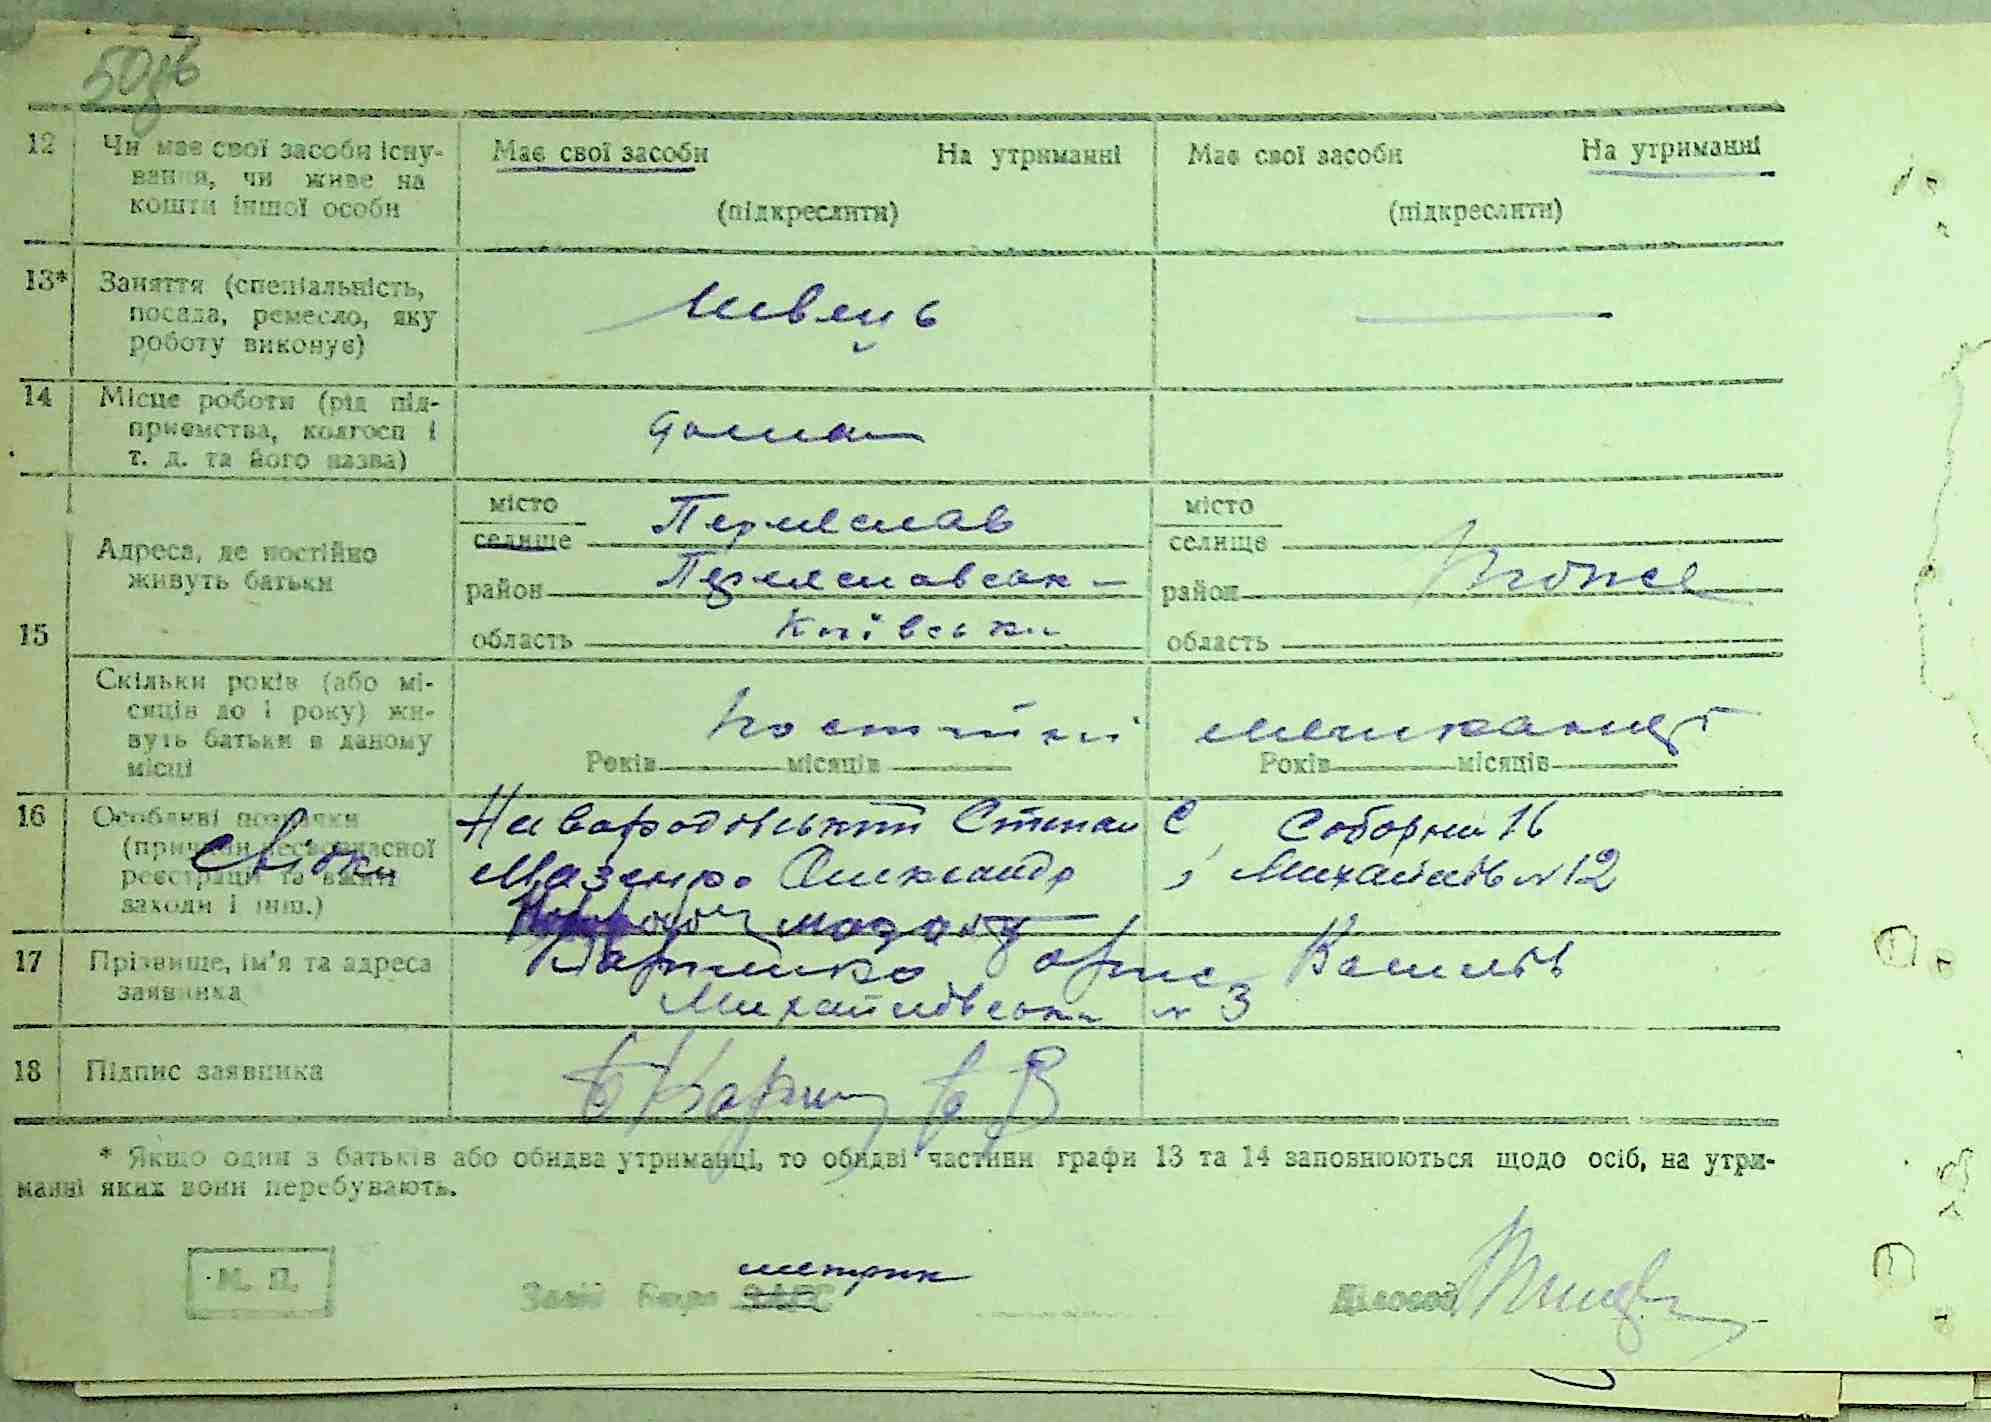 50зв
12 Чи має свої засоби існу- Має свої засоби На утриманні Має свої засоби На утриманні
вання, чи живе на
кошти іншої особи (підкреслити) (підкреслити)
13* Заняття (спеціальність,
посада, ремесло, яку Швець
роботу виконує)
14 Місце роботи (рід під-
приємства, колгосп і дома
т. д. та його назва)
15 Адреса, де постійно
живуть батьки
місто Переяслав місто
селище селище
район Переяславськ- район тоже
область Київська область
Скільки років (або мі-
сяців до 1 року) жи- Постійні мешканці
вуть батьки в даному
місці Років місяців Років місяців
16 Особливі позначки Степан С. Соборна 16
(причини несвоєчасної Свідки Олександр, Михайлів №12
реєстрації та вжиті
заходи і інш.)
17 Прізвище, ім'я та адреса Василів
заявника Михайлівська № 3
18 Підпис заявника
* Якщо один з батьків або обидва утриманці, то обидві частини графи 13 та 14 заповнюються щодо осіб, на утри-
манні яких вони перебувають.
М. П. Зав. Бюро ЗАГС метрик Діловод